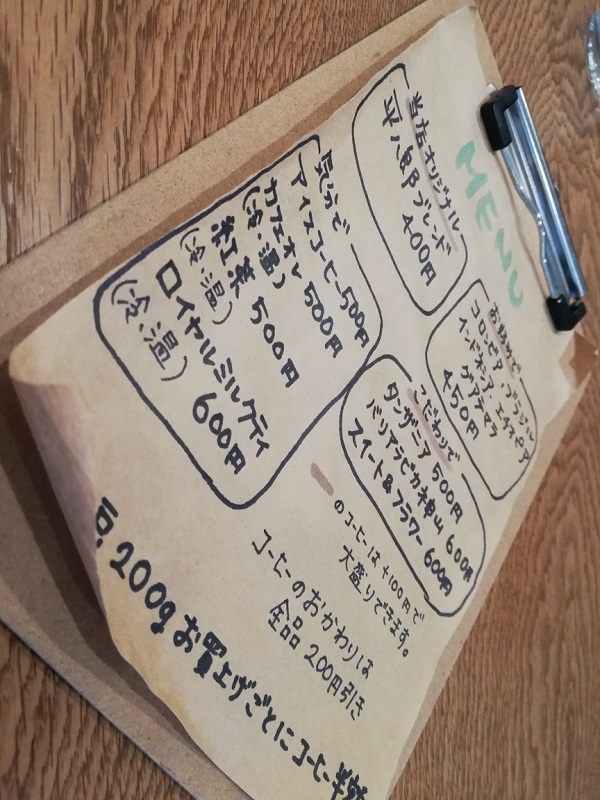 MENU
当店オリジナル
平八郎ブレンド
400円
お好みで
コロンビア・ブラジル
インドネシア・エチオピア
グアテマラ
450円
こだわりで
タンザニア 500円
バリアラビカ神山 600円
スイート&フラワー 600円
気分で
アイスコーヒー 500円
カフェオレ 500円
(冷・温)
紅茶 500円
(冷・温)
ロイヤルミルクティ
(冷・温) 600円
のコーヒーは+100円で
大盛りできます。
コーヒーのおかわりは
全品 200円引き
豆200gお買上げごとにコーヒー半額